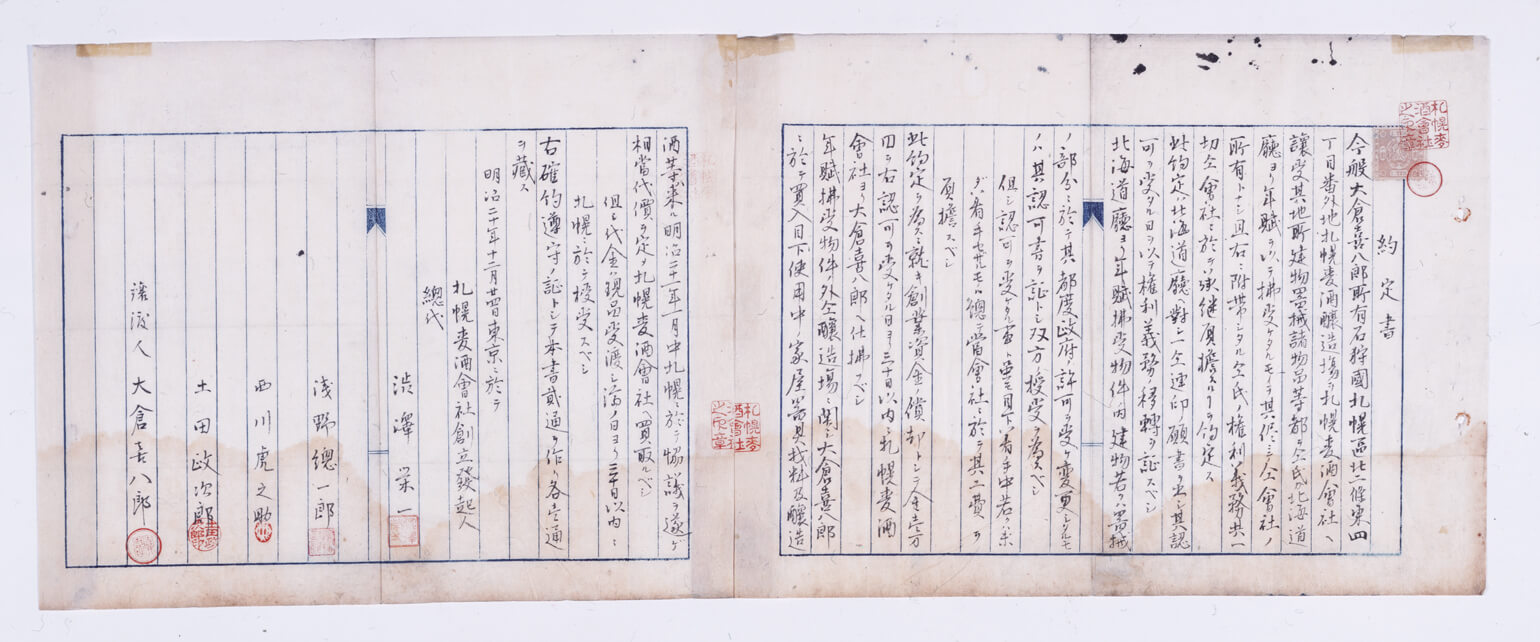 約定書
今般大倉喜八郎所有石狩國札幌區北二條東四
丁目番外地札幌麦酒醸造場ヲ札幌麦酒會社ヘ
譲受其地所建物器械諸物品等都テ仝氏ガ北海道
廳ヨリ年賦ヲ以テ拂受ケタルモノヲ其侭ニ仝會社ノ
所有トナシ且右ニ附帯シタル仝氏ノ権利義務共一
切仝會社ニ於テ承継負擔スルヿヲ約定ス
此約定ハ北海道廳ヘ對シ一仝連印願書ヲ出シ其認
可ヲ受タル日ヲ以テ権利義務ノ移轉ヲ証スベシ
北海道廳ヨリ年賦拂受物件ノ内建物若クハ器械
ノ部分ニ於テ其都度政府ノ許可ヲ受ケ変更シタルモ
ノハ其認可書ヲ証トシ双方ノ授受ヲ為スベシ
但シ認可ヲ受ケタル事ト雖モ目下着手中若クハ未
ダ着手セザルモノハ總テ當會社ニ於テ其工費ヲ
負擔スベシ
此約定ヲ為スニ就キ創業資金ノ償却トシテ金壱万
円ヲ右認可ヲ受ケタル日ヨリ三十日以内ニ札幌麦酒
會社ヨリ大倉喜八郎ヘ仕拂スベシ
年賦拂受物件ノ外仝醸造場ニ関シ大倉喜八郎
ニ於テ買入目下使用中ノ家屋器具材料及醸造
酒等来ル明治二十一年一月中札幌ニ於テ協議ヲ遂ゲ
相當代價ヲ定メ札幌麦酒會社ヘ買取ルベシ
但シ代金ハ現品受渡シ済ノ日ヨリ三十日以内ニ
札幌ニ於テ授受スベシ
右確約遵守ノ証トシテ本書貳通ヲ作リ各壱通
ヲ蔵ス
明治二十年十二月廿四日東京ニ於テ
札幌麦酒會社創立發起人
總代
渋澤栄一
浅野總一郎
西川虎之助
土田政次郎
譲渡人 大倉喜八郎
札幌麦
酒會社
之印章
札幌麦
酒會社
之印章